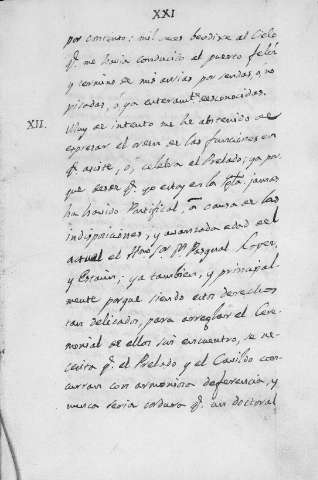 XXI
por contento; mil veces bendixe al Cielo
q.e me havia conducido el puerto feliz
y termino de mis ansias por sendas, ó no
pisadas, ó ya enteram.te desconocidas.
XII. Muy de intento me he abstenido de
expresar el orden de las funciones en
q.e asiste, ó celebra el Prelado; ya por
que desde q.e yo estoy en la Igla. jamas
ha havido Pontifical, á causa de las
indisposiciones, y avanzada edad del
actual el Illmo Sor. Dn. Pasqual Lopez,
y Estaun; ya tambien, y principal-
mente porque siendo estos derechos
tan delicados, para arreglar el Cere-
monial de ellos sin encuentro, se ne-
cesita q.e el Prelado y el Cavildo con-
curran con armoniosa deferencia, y
nunca seria cordura q.e un Doctoral